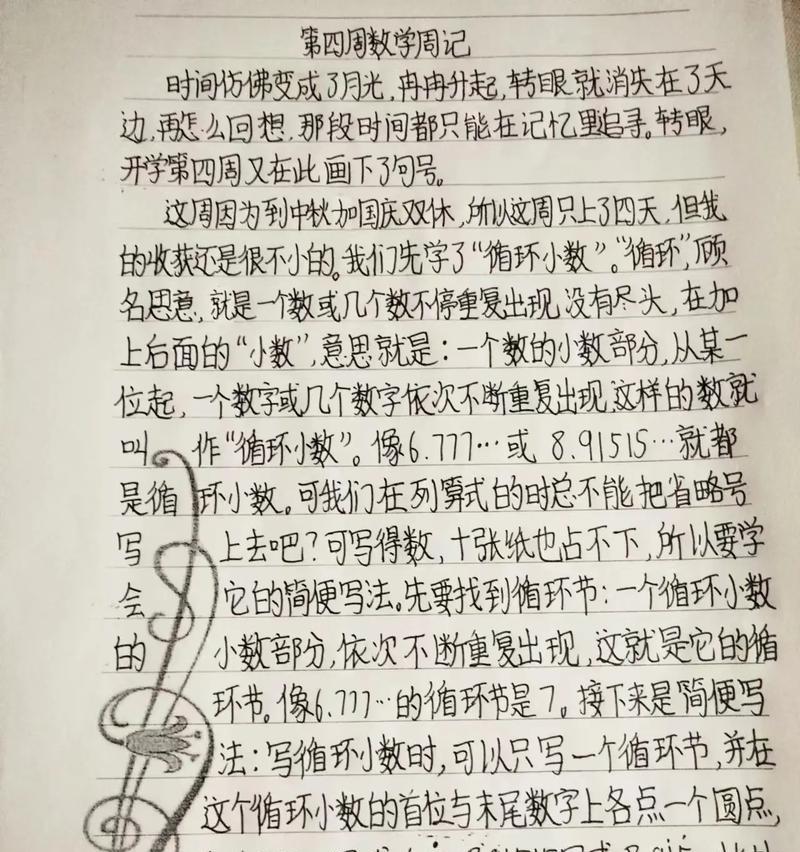 第四周数学周记
时间仿佛变成了月光,冉冉升起,转眼就消失在了天
边,再怎么回想,那段时间都只能在记忆里追寻。转眼,
开学第四周又在此画下了句号。
这周因为到中秋加国庆双休,所以这周只上了四天,但我
的收获还是很不小的。我们先学了“循环小数”。“循环”,顾
名思意,就是一个数或几个数不停重复出现,没有尽头,在加
上后面的“小数”,意思就是:一个数的小数部分,从某一
位起,一个数字或几个数字依次不断重复出现,这样的数就
叫作“循环小数”。像6.777…或8.91515…就都
是循环小数。可我们在列算式的时总不能把省略号
写上去吧?可写得数,十张纸也占不下,所以要学
会它的简便写法。先要找到循环节:一个循环小数
的小数部分,依次不断重复出现,这就是它的循
环节。像6.777…的循环节是7。接下来是简便写
法:写循环小数时,可以只写一个循环节,并在
这个循环小数的首位与末尾数字上各点一个圆点,